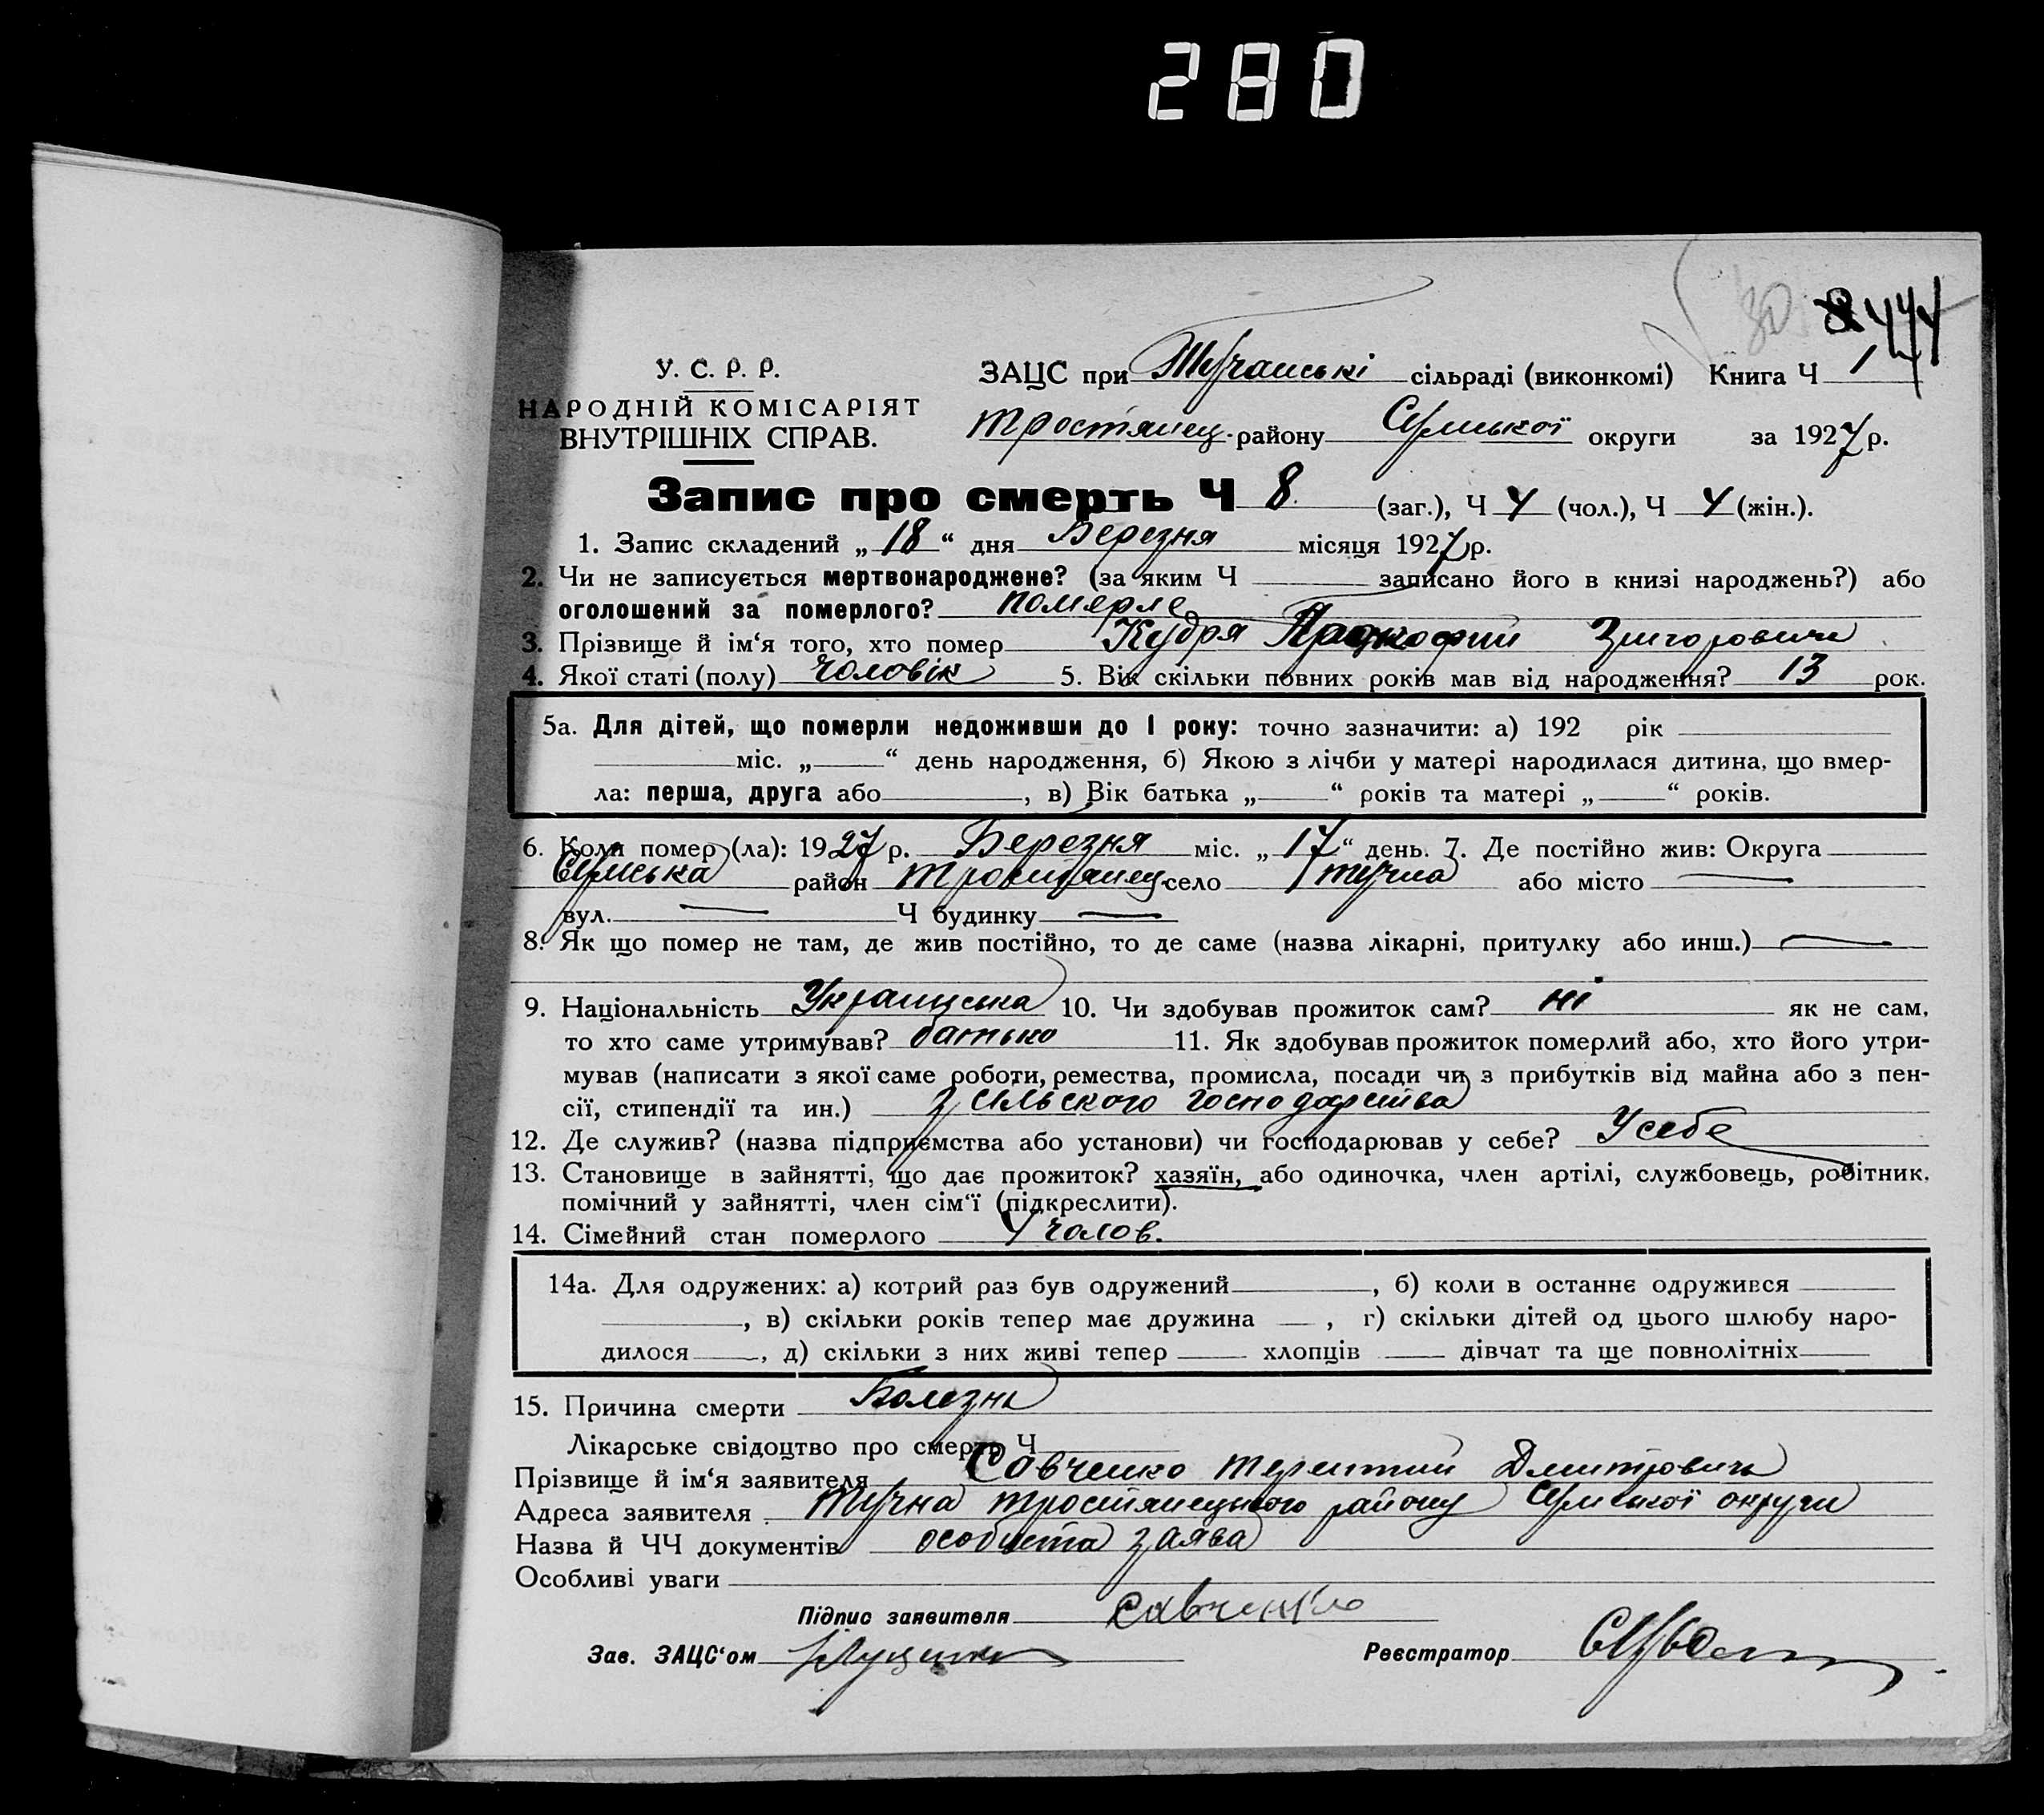 280
30 8 444
У. С. Р. Р.
НАРОДНІЙ КОМІСАРІЯТ
ВНУТРІШНІХ СПРАВ.
ЗАЦС при Тучанські сільраді (виконкомі) Книга Ч 1
Тростянец. району Сумської округи за 1927 р.
Запис про смерть Ч 8. (заг.), Ч 4 (чол.), Ч 4 (жін.).
1. Запис складений „ 18 “ дня Березня місяця 1927 р.
2. Чи не записується мертвонароджене? (за яким Ч записано його в книзі народжень?) або
оголошений за померлого? померле
3. Прізвище й ім‘я того, хто помер Кудря Прокофий Григорович
4. Якої статі (полу) чоловік 5. Вік скільки повних років мав від народження? 13 рок.
5а. Для дітей, що померли недоживши до 1 року: точно зазначити: а) 192 рік
міс. „ “ день народження, б) Якою з лічби у матері народилася дитина, що вмер-
ла: перша, друга або , в) Вік батька „ “ років та матері „ “ років.
6. Коли помер (ла): 1927 р. Березня міс. „ 17 “ день. 7. Де постійно жив: Округа
Сумська район Тростянец село Тучна або місто —
вул. — Ч будинку —
8. Як що помер не там, де жив постійно, то де саме (назва лікарні, притулку або инш.) —
9. Національність Українська 10. Чи здобував прожиток сам? ні як не сам,
то хто саме утримував? батько 11. Як здобував прожиток померлий або, хто його утри-
мував (написати з якої саме роботи, ремества, промисла, посади чи з прибутків від майна або з пен-
сії, стипендії та ин.) з сільского господарства
12. Де служив? (назва підприємства або установи) чи господарював у себе? У себе
13. Становище в зайнятті, що дає прожиток? хазяїн, або одиночка, член артілі, службовець, робітник,
помічний у зайнятті, член сім‘ї (підкреслити).
14. Сімейний стан померлого 4 чолов.
14а. Для одружених: а) котрий раз був одружений , б) коли в останнє одружився
, в) скільки років тепер має дружина , г) скільки дітей од цього шлюбу наро-
дилося , д) скільки з них живі тепер хлопців дівчат та ще повнолітніх
15. Причина смерти Болезнь
Лікарське свідоцтво про смерть Ч
Прізвище й ім‘я заявителя Савченко Терентий Дмитрович
Адреса заявителя Тучна Тростянецького району Сумської округи
Назва й ЧЧ документів особиста заява
Особливі уваги
Підпис заявителя Савченко
Зав. ЗАЦС‘ом
Реєстратор